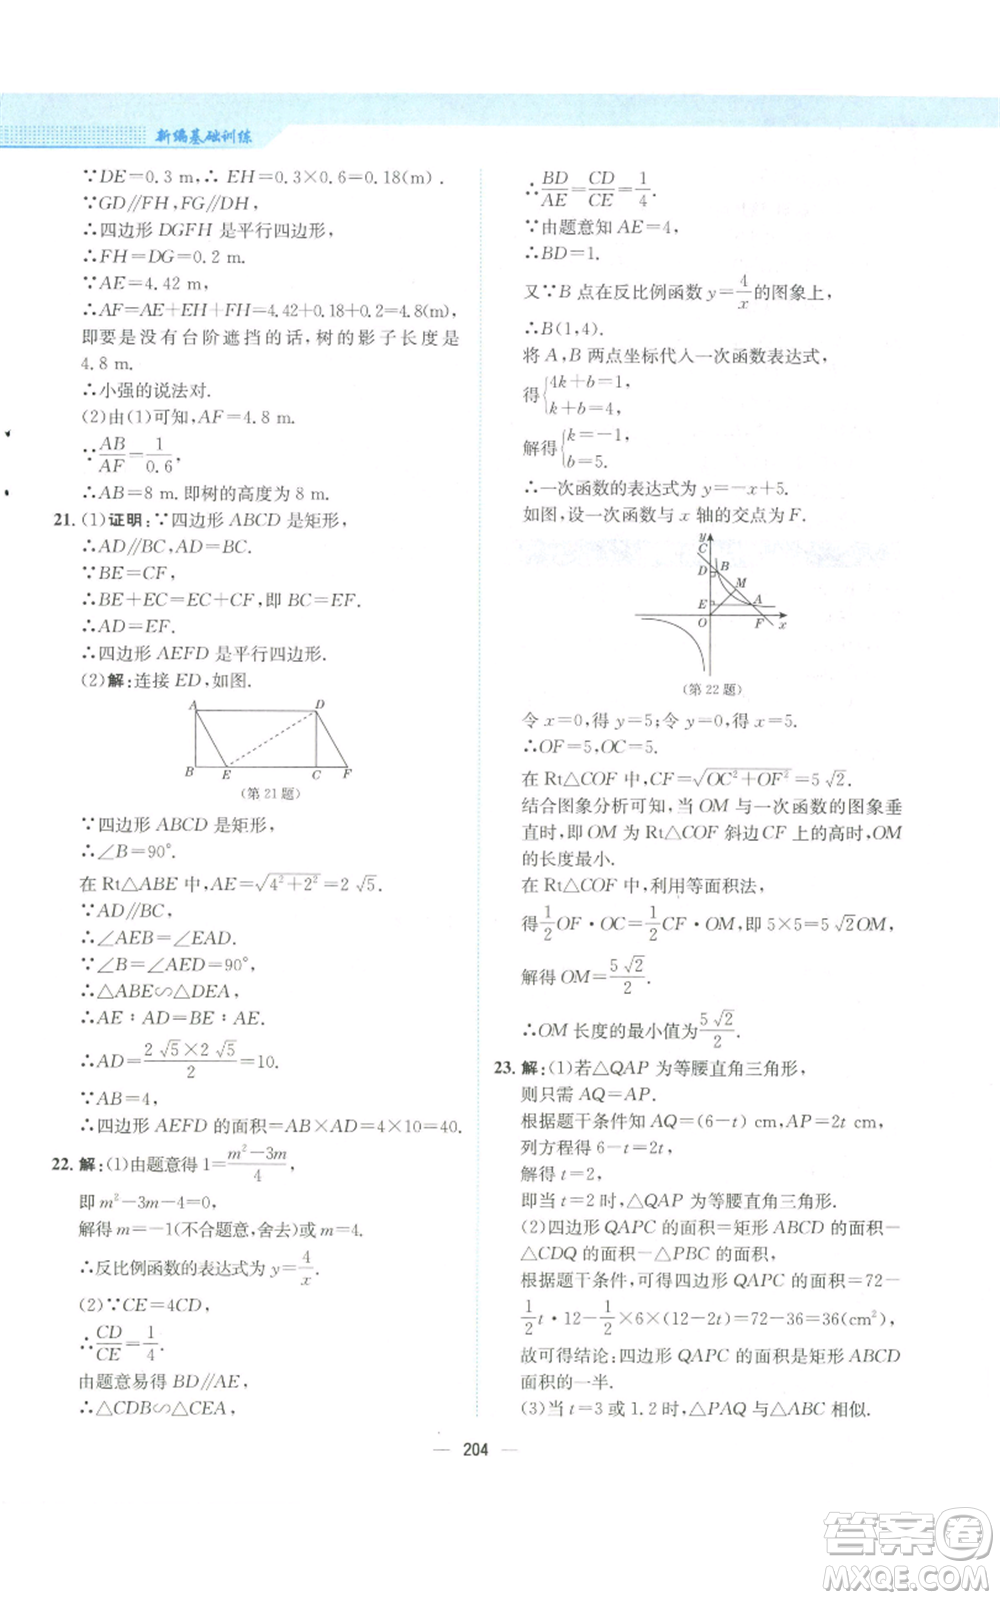 新编基础训练
∵DE=0.3 m,∴ EH=0.3×0.6=0.18(m).
∵GD//FH,FG//DH,
∴四边形 DGFH 是平行四边形,
∴FH=DG=0.2 m.
∵AE=4.42 m,
∴AF=AE+EH+FH=4.42+0.18+0.2=4.8(m),
即要是没有台阶遮挡的话,树的影子长度是
4.8 m.
∴小强的说法对.
(2)由(1)可知,AF=4.8 m.
∵AB/AF=1/0.6,
∴AB=8 m.即树的高度为 8 m.
21. (1)证明:∵四边形 ABCD 是矩形,
∴AD//BC,AD=BC.
∵BE=CF,
∴BE+EC=EC+CF,即 BC=EF.
∴AD=EF.
∴四边形 AEFD 是平行四边形.
(2)解:连接 ED,如图.
A D
B E C F
(第 21 题)
∵四边形 ABCD 是矩形,
∴∠B=90°.
在 Rt△ABE 中,AE=√(4²+2²)=2√5.
∵AD//BC,
∴∠AEB=∠EAD.
∵∠B=∠AED=90°,
∴△ABE∽△DEA,
∴AE:AD=BE:AE.
∴AD=(2√5×2√5)/2=10.
∵AB=4,
∴四边形 AEFD 的面积=AB×AD=4×10=40.
22. 解:(1)由题意得 1=(m²-3m)/4,
即 m²-3m-4=0,
解得 m=-1(不合题意,舍去)或 m=4.
∴反比例函数的表达式为 y=4/x.
(2)∵CE=4CD,
∴CD/CE=1/4.
由题意易得 BD//AE,
∴△CDB∽△CEA,
∴BD/AE=CD/CE=1/4.
∵由题意知 AE=4,
∴BD=1.
又∵B 点在反比例函数 y=4/x的图象上,
∴B(1,4).
将 A,B 两点坐标代入一次函数表达式,
得{4k+b=1,
k+b=4.
解得{k=-1,
b=5.
∴一次函数的表达式为 y=-x+5.
如图,设一次函数与 x 轴的交点为 F.
y
C
D B
M
E A
O F x
(第 22 题)
令 x=0,得 y=5;令 y=0,得 x=5.
∴OF=5,OC=5.
在 Rt△COF 中,CF=√(OC²+OF²)=5√2.
结合图象分析可知,当 OM 与一次函数的图象垂
直时,即 OM 为 Rt△COF 斜边 CF 上的高时,OM
的长度最小.
在 Rt△COF 中,利用等面积法,
得1/2OF·OC=1/2CF·OM,即 5×5=5√2OM,
解得 OM=5√2/2.
∴OM 长度的最小值为5√2/2.
23. 解:(1)若△QAP 为等腰直角三角形,
则只需 AQ=AP.
根据题干条件知 AQ=(6-t) cm,AP=2t cm,
列方程得 6-t=2t,
解得 t=2,
即当 t=2 时,△QAP 为等腰直角三角形.
(2)四边形 QAPC 的面积=矩形 ABCD 的面积-
△CDQ 的面积-△PBC 的面积,
根据题干条件,可得四边形 QAPC 的面积=72-
1/2t·12-1/2×6×(12-2t)=72-36=36(cm²),
故可得结论:四边形 QAPC 的面积是矩形 ABCD
面积的一半.
(3)当 t=3 或 1.2 时,△PAQ 与△ABC 相似.
204
答案卷
MXQE.COM